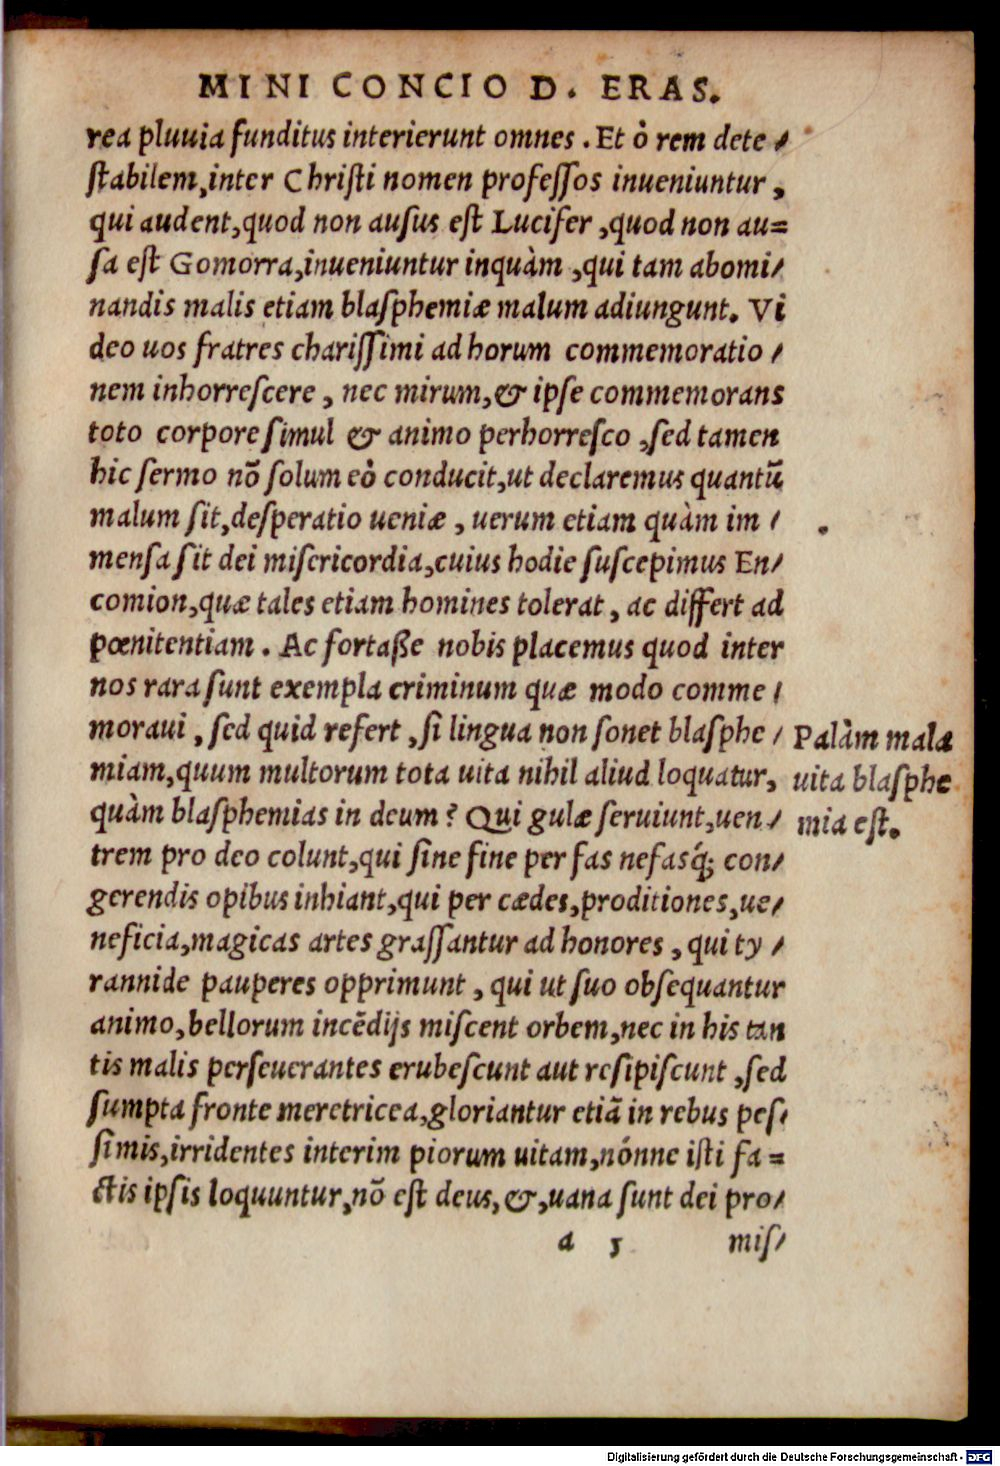 MINI CONCIO D. ERAS.
rea pluuia funditus interierunt omnes. Et ò rem dete/
ſtabilem, inter Chriſti nomen profeſſos inueniuntur,
qui audent, quod non auſus eſt Lucifer, quod non au=
ſa eſt Gomorra, inueniuntur inquàm, qui tam abomi/
nandis malis etiam blaſphemiæ malum adiungunt. Vi
deo uos fratres chariſſimi ad horum commemoratio/
nem inhorreſcere, nec mirum, & ipſe commemorans
toto corpore ſimul & animo perhorreſco, ſed tamen
hic ſermo nõ ſolum eò conducit, ut declaremus quantũ
malum ſit, deſperatio ueniæ, uerum etiam quàm im/
menſa ſit dei miſericordia, cuius hodie ſuſcepimus En/
comion, quæ tales etiam homines tolerat, ac differt ad
pœnitentiam. Ac fortaße nobis placemus quod inter
nos rara ſunt exempla criminum quæ modo comme/
moraui, ſed quid refert, ſi lingua non ſonet blaſphe/
miam, quum multorum tota uita nihil aliud loquatur,
quàm blaſphemias in deum? Qui gulæ ſeruiunt, uen/
trem pro deo colunt, qui ſine fine per fas nefasq́; con/
gerendis opibus inhiant, qui per cædes, proditiones, ue/
neficia, magicas artes graſſantur ad honores, qui ty/
rannide pauperes opprimunt, qui ut ſuo obſequantur
animo, bellorum incẽdijs miſcent orbem, nec in his tan
tis malis perſeuerantes erubeſcunt aut reſipiſcunt, ſed
ſumpta fronte meretricea, gloriantur etiã in rebus peſ/
ſimis, irridentes interim piorum uitam, nónne iſti fa=
ctis ipſis loquuntur, nõ eſt deus, &, uana ſunt dei pro/
a 5 miſ/
Palàm mala
uita blaſphe
mia eſt.
Digitalisierung gefördert durch die Deutsche Forschungsgemeinschaft - DFG